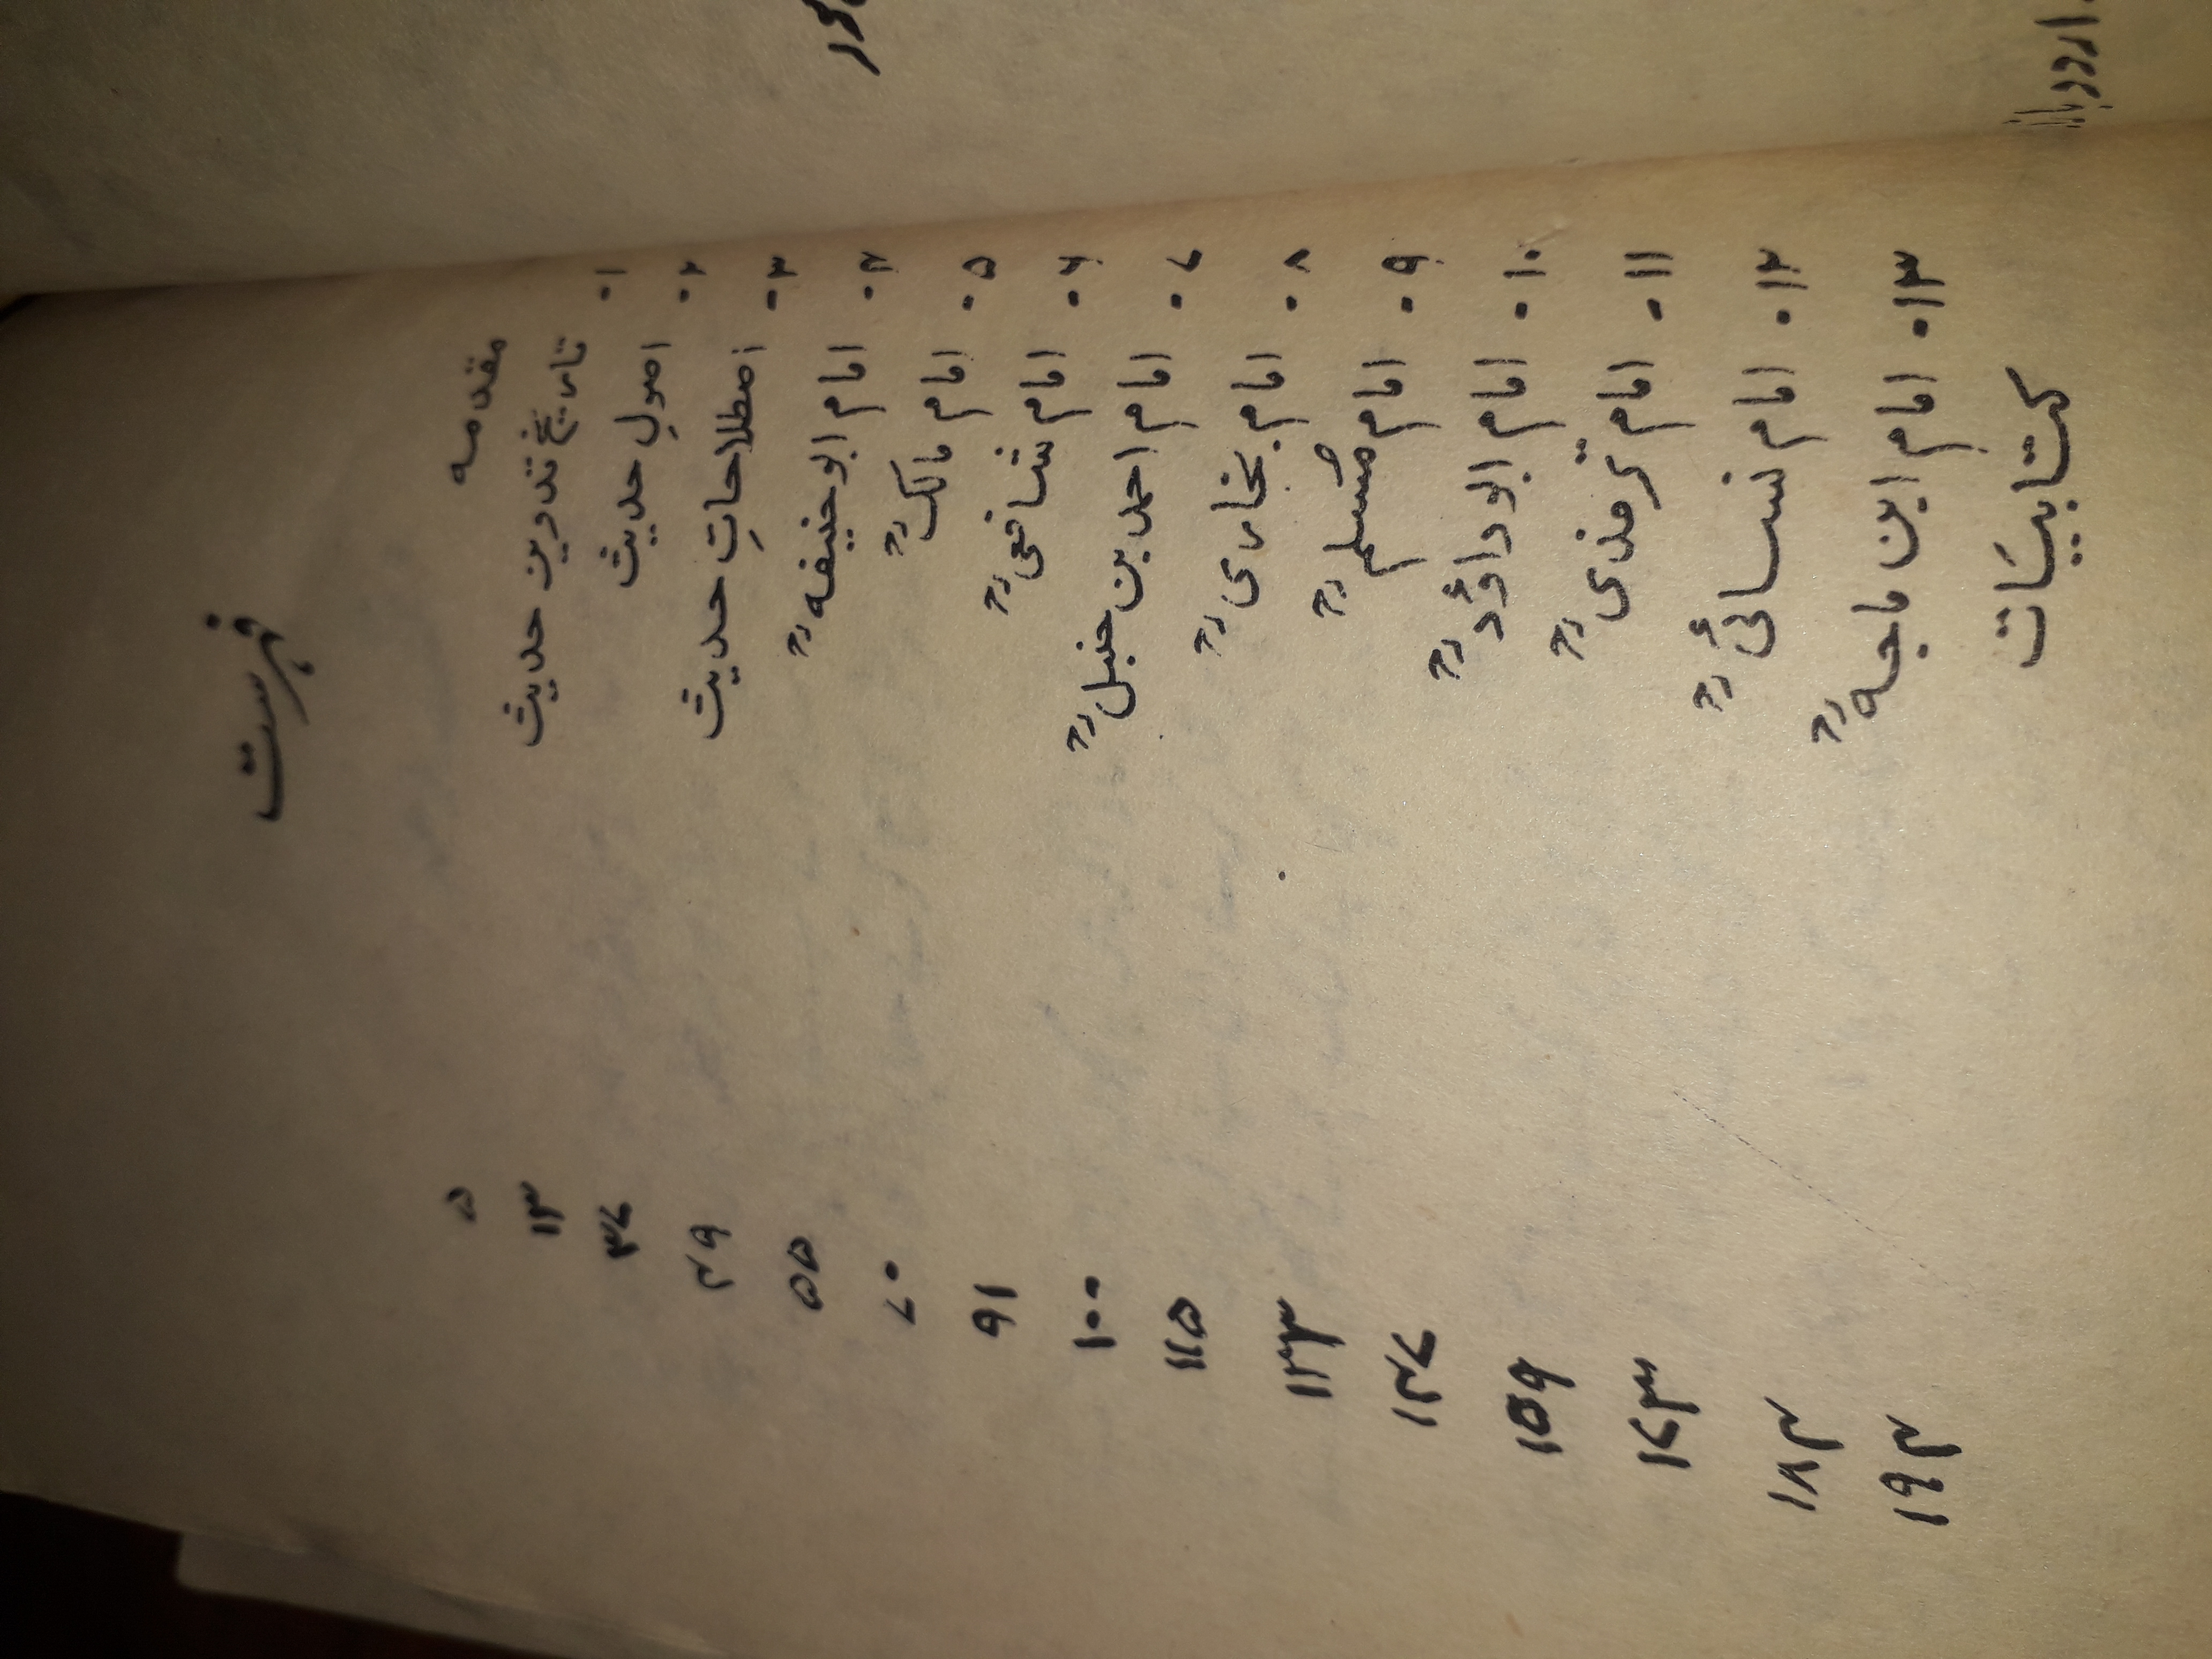 فہرست
مقدمہ ۵
۱۔ تاریخ تدوین حدیث ۱۳
۲۔ اصولِ حدیث ۳۷
۳۔ اصطلاحاتِ حدیث ۴۹
۴۔ امام ابوحنیفہؒ ۵۵
۵۔ امام مالکؒ ۷۰
۶۔ امام شافعیؒ ۹۱
۷۔ امام احمد بن حنبلؒ ۱۰۰
۸۔ امام بخاریؒ ۱۱۵
۹۔ امام مُسلمؒ ۱۳۳
۱۰۔ امام ابو داؤدؒ ۱۴۷
۱۱۔ امام ترمذیؒ ۱۵۹
۱۲۔ امام نسائیؒ ۱۷۳
۱۳۔ امام ابن ماجہؒ ۱۸۴
کتابیَات ۱۹۴